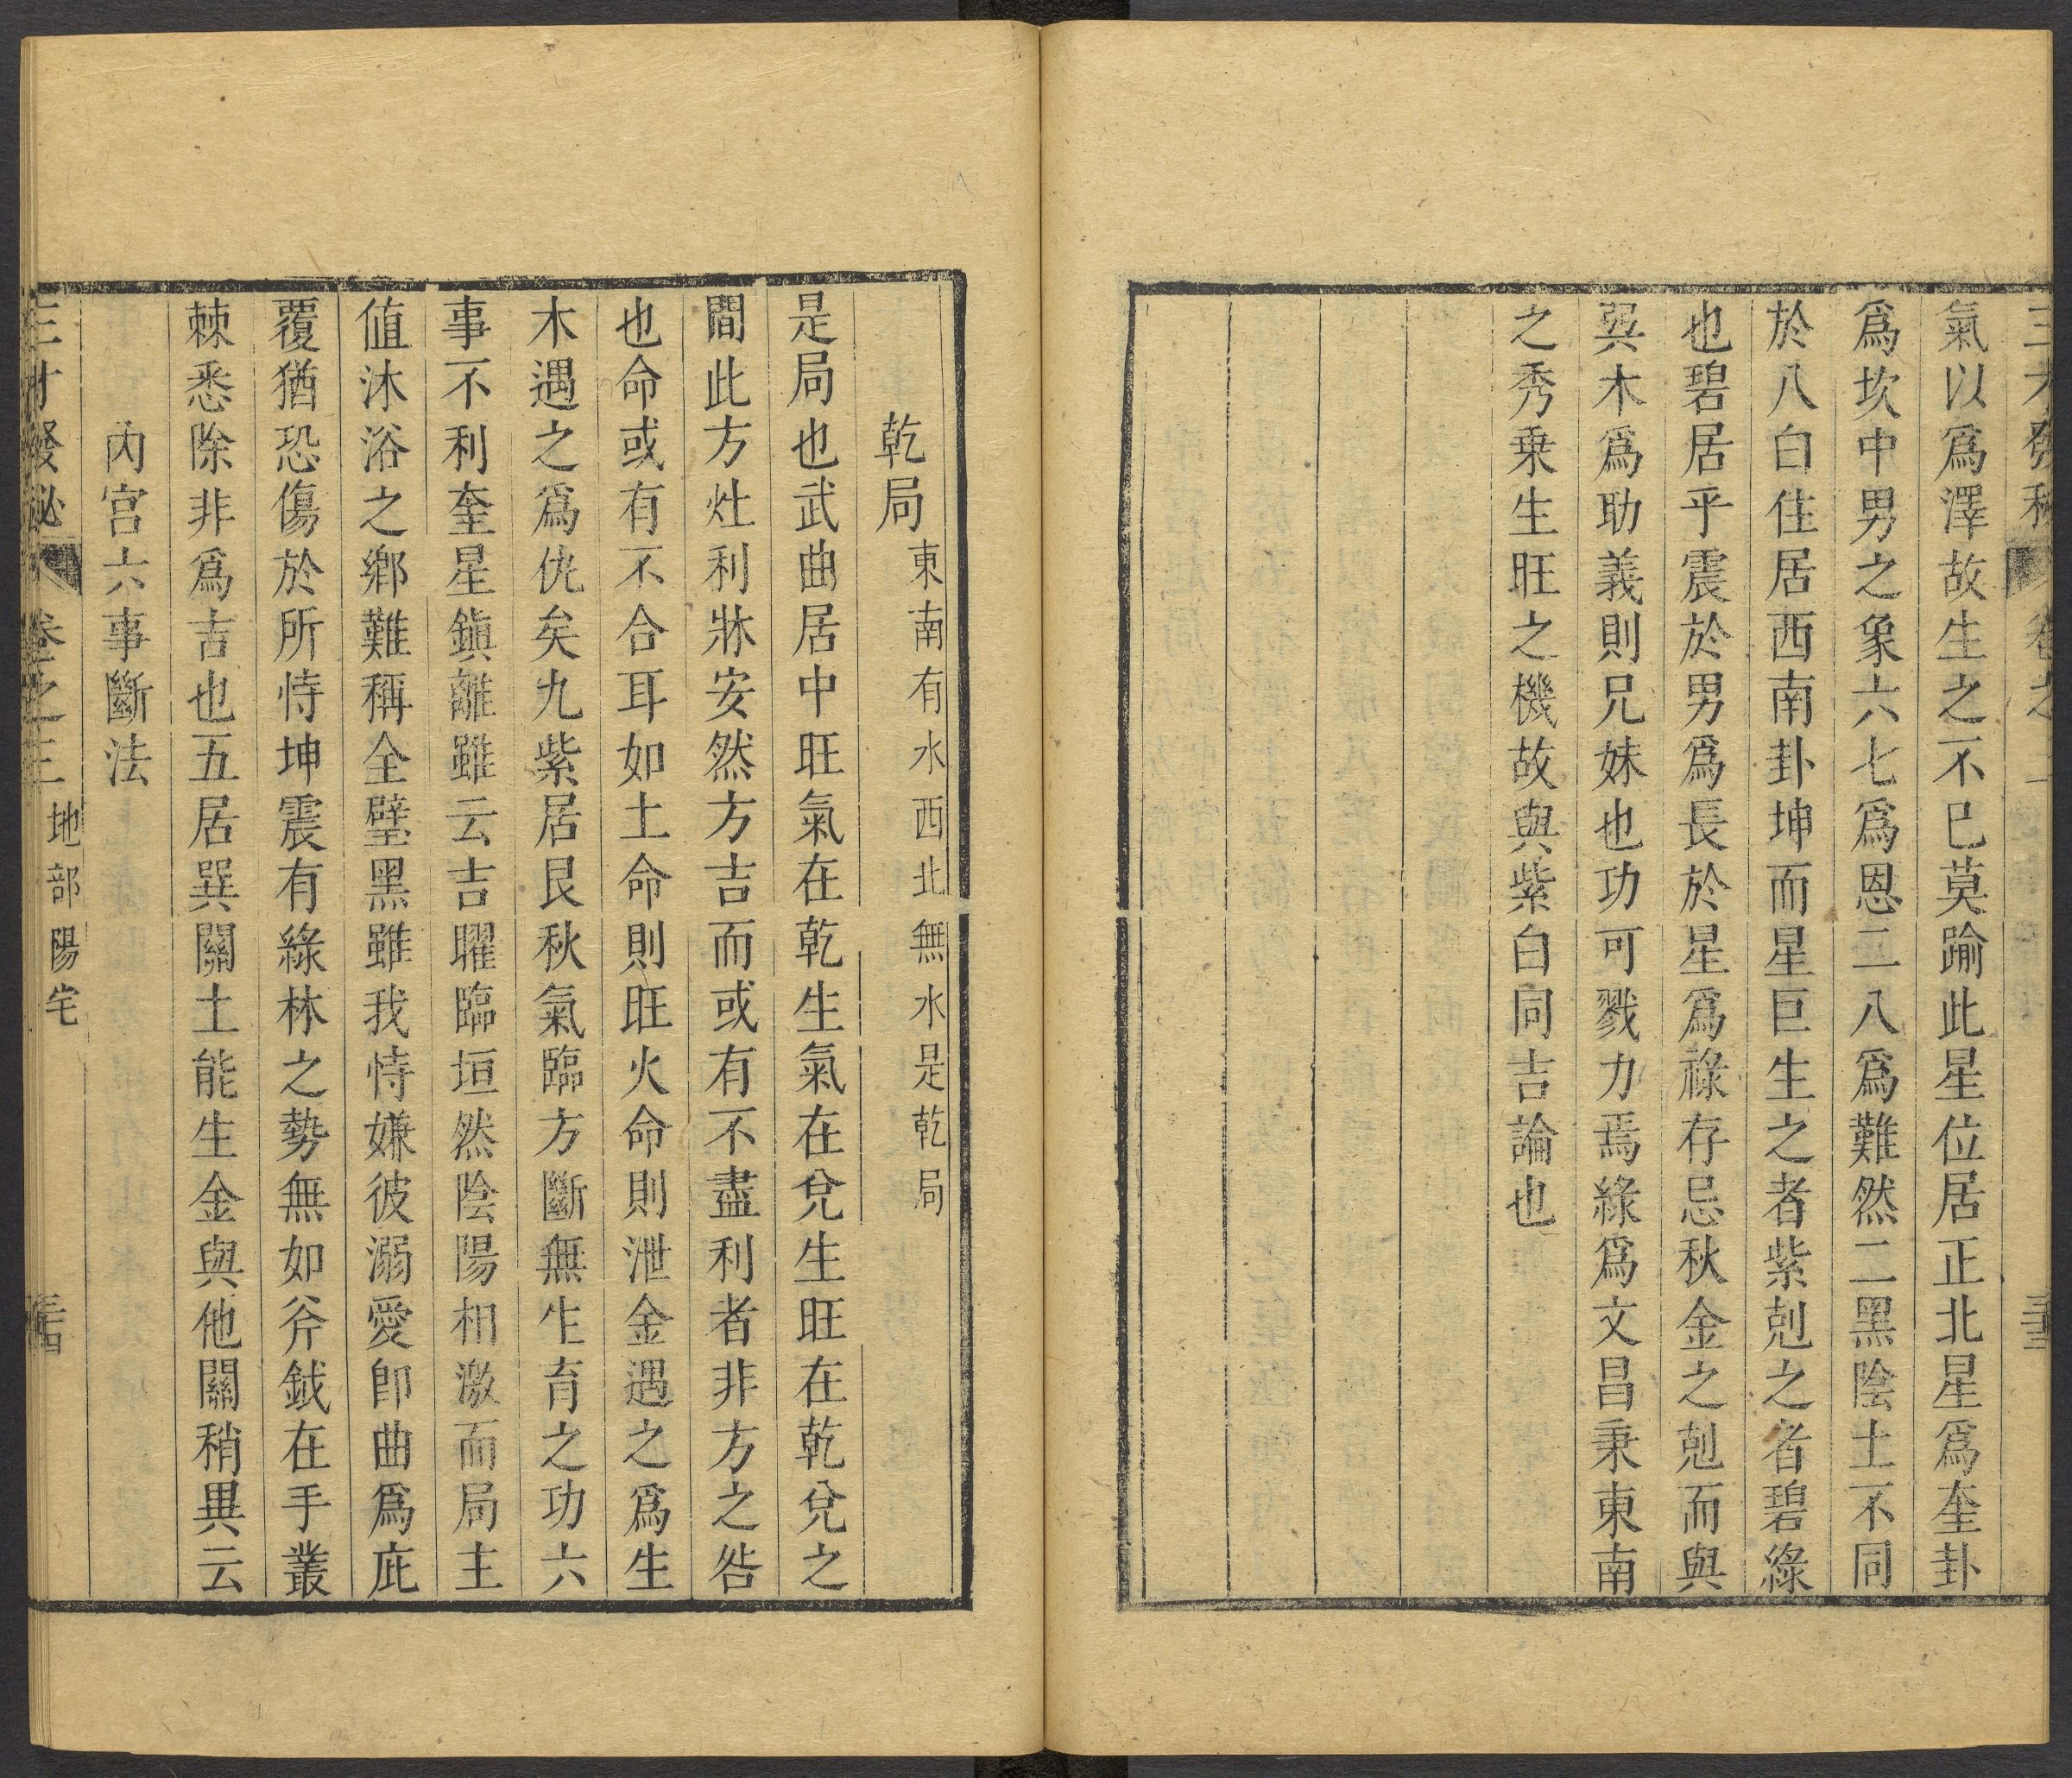 氣以爲澤故生之不已莫踰此星位居正北星爲奎卦
爲坎中男之象六七爲恩二八爲難然二黑陰土不同
於八白住居西南卦坤而星巨生之者紫剋之者碧綠
也碧居乎震於男爲長於星爲祿存忌秋金之剋而與
巽木爲助義則兄妹也功可戮力焉綠爲文昌秉東南
之秀乗生旺之機故與紫白同吉論也
乾局東南有水西北無水是乾局
是局也武曲居中旺氣在乾生氣在兌生旺在乾兌之
間此方灶利牀安然方吉而或有不盡利者非方之咎
也命或有不合耳如土命則旺火命則泄金遇之爲生
木遇之爲仇矣九紫居艮秋氣臨方斷無生育之功六
事不利奎星鎭離雖云吉曜臨垣然陰陽相激而局主
值沐浴之鄉難稱全璧黑雖我恃嫌彼溺愛卽曲爲庇
覆猶恐傷於所恃坤震有綠林之勢無如斧鉞在手叢
棘悉除非爲吉也五居巽關土能生金與他關稍異云
內宮六事斷法
三才發秘 卷之三 地部陽宅 三十四